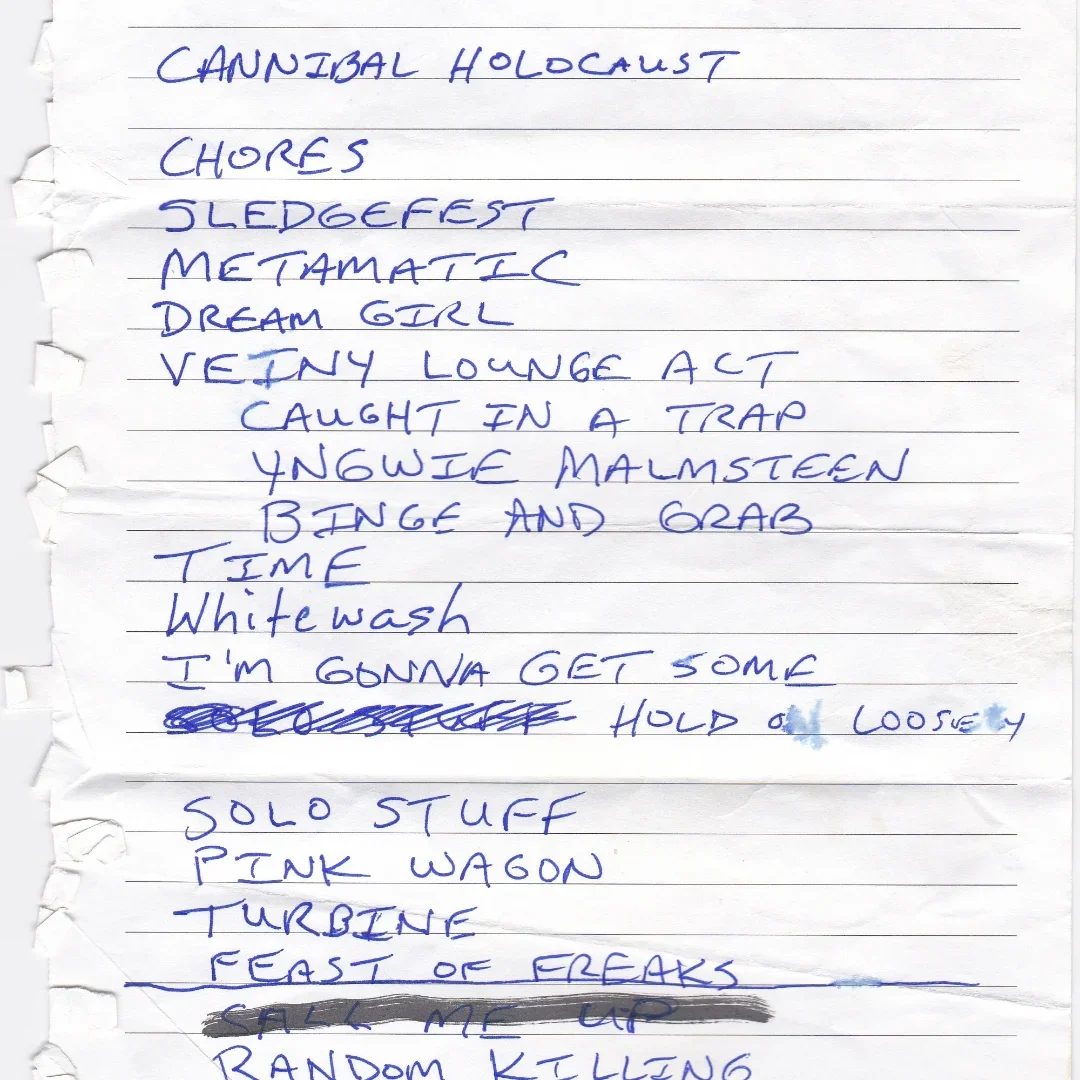 CANNIBAL HOLOCAUST
CHORES
SLEDGEFEST
METAMATIC
DREAM GIRL
VEINY LOUNGE ACT
CAUGHT IN A TRAP
YNGWIE MALMSTEEN
BINGE AND GRAB
TIME
Whitewash
I'M GONNA GET SOME
SOLO STUFF HOLD ON LOOSELY
SOLO STUFF
PINK WAGON
TURBINE
FEAST OF FREAKS
ME UP
RANDOM KILLING